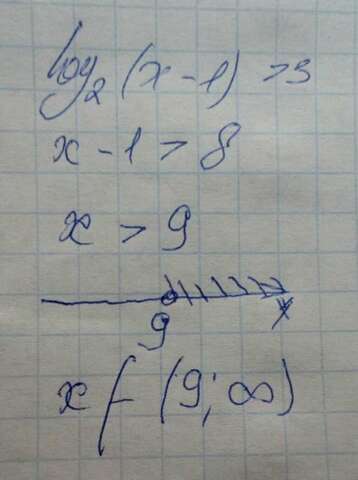 log₂(x-1)>3
x-1>8
x>9
9 x
x∈(9;∞)